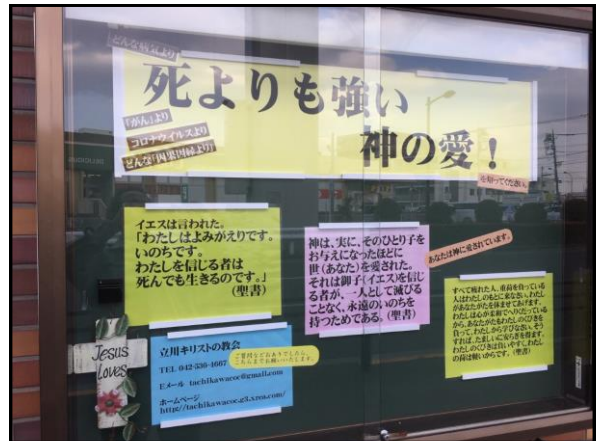 どんな病気より
死よりも強い
神の愛！
「がん」より
コロナウイルスより
どんな「因果応報より」
を知ってください。
イエスは言われた。
「わたしはよみがえりです。
いのちです。
わたしを信じる者は
死んでも生きるのです。」
（聖書）
神は、実に、そのひとり子を
お与えになったほどに
世（あなた）を愛された。
それは御子（イエス）を信じ
る者が、一人として滅びる
ことなく、永遠のいのちを
持つためである。（聖書）
あなたは神に愛されています。
すべて疲れた人、重荷を負っている
人はわたしのもとに来なさい。わたし
があなたがたを休ませてあげます。
わたしは心が柔和でへりくだっている
から、あなたがたもわたしのくびきを
負って、わたしから学びなさい。そう
すれば、たましいに安らぎを得ます。
わたしのくびきは負いやすく、わたし
の荷は軽いからです。（聖書）
Jesus
Loves
立川キリストの教会
TEL 042-536-1667
ご質問などおありでしたら、
こちらまでお願いいたします。
Eメール tachikawacoc@gmail.com
ホームページ
http://tachikawacoc.g3.xrea.com/